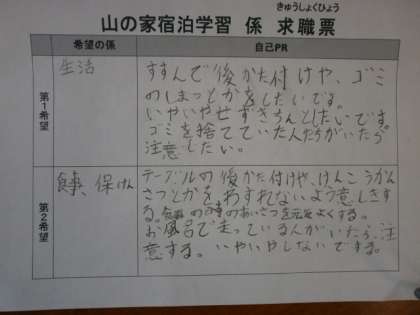 きゅうしょくひょう
山の家宿泊学習 係 求職票
希望の係 自己PR
第1希望
生活
すすんで後かた付けや、ゴミ
のしまつとかをしたいです。
いやいやせずきちんとしたいです。
ゴミを捨てていた人たちがいたら、
注意したい。
第2希望
食事、保けん
テーブルの後かた付けや、けんこうかん
さつとかをわすれないよう意しきす
る。食事の時のあいさつを元気よくする。
お風呂で走っている人がいたら、注
意する。いやいやしないでする。